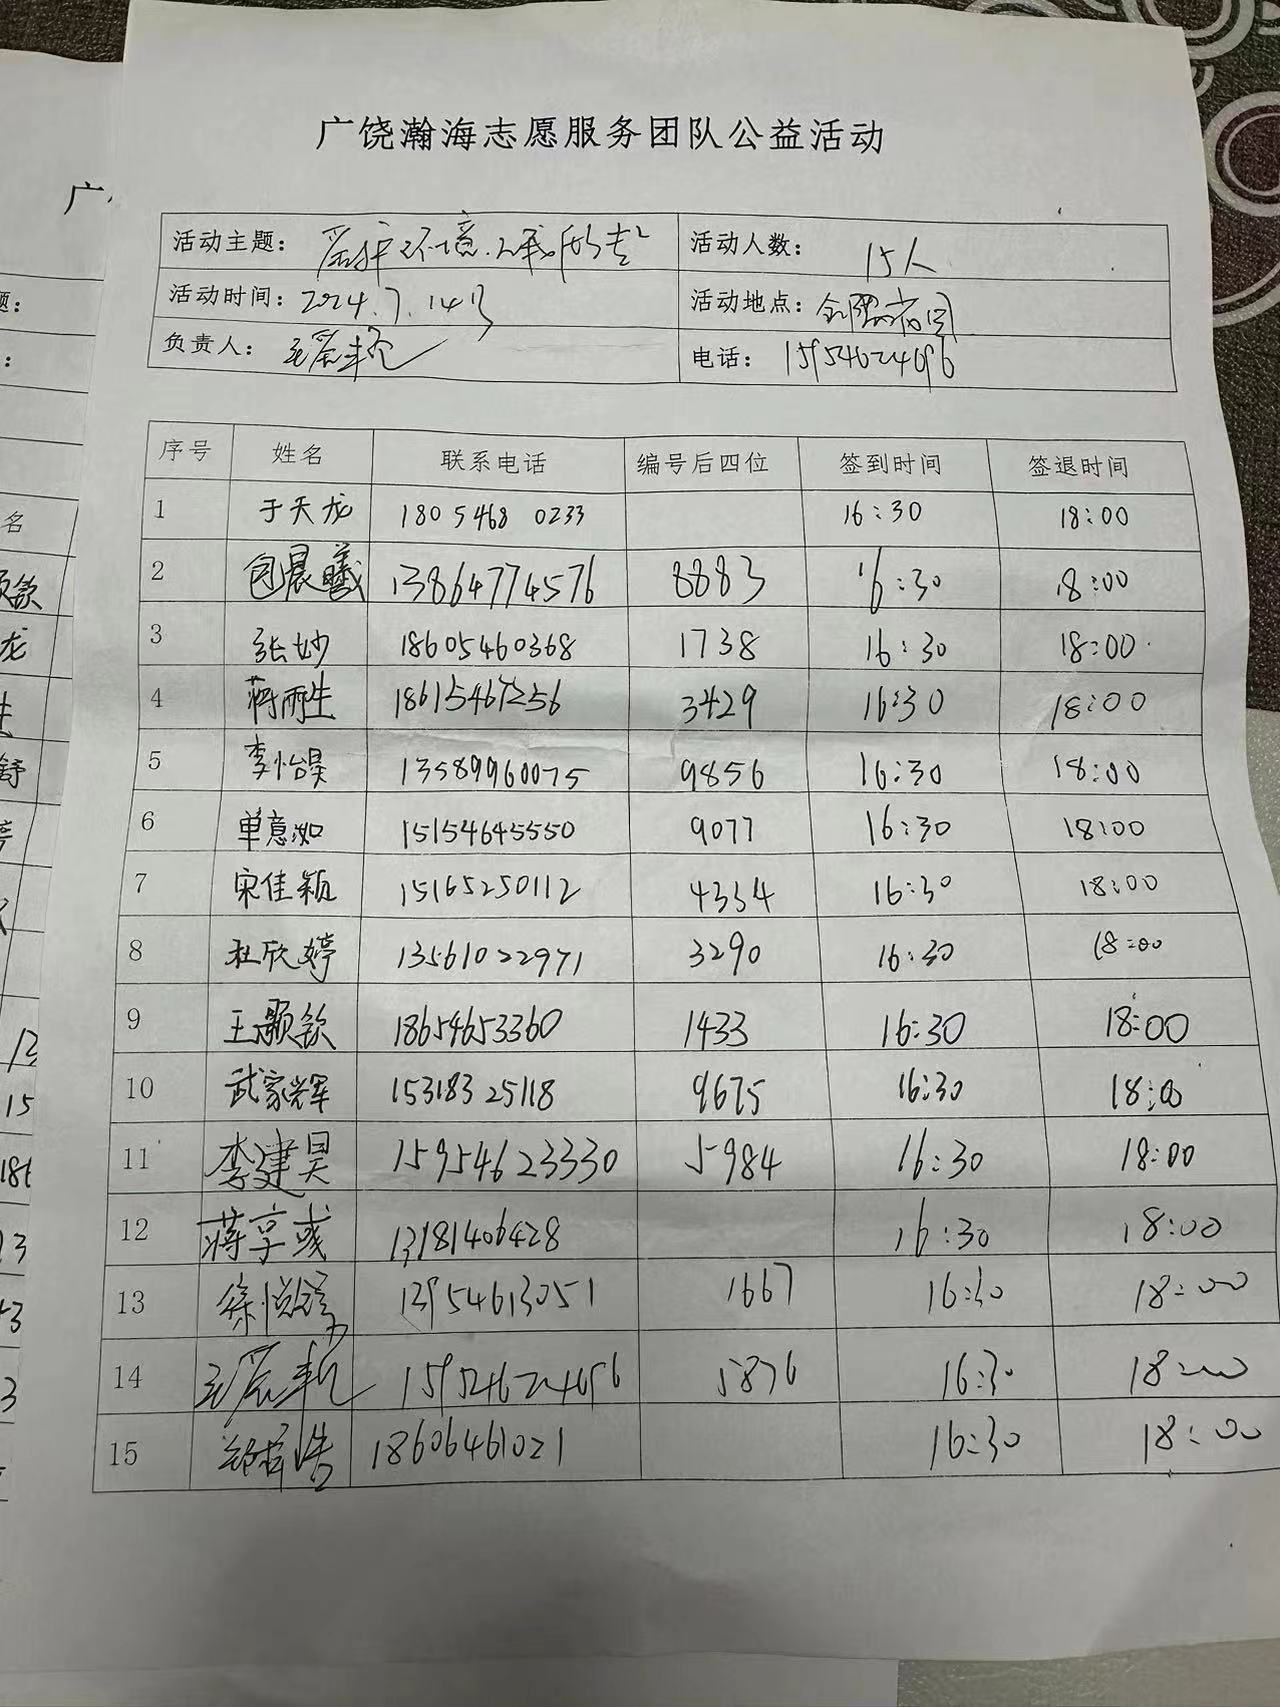 广饶瀚海志愿服务团队公益活动
活动主题：爱护环境.从我做起 活动人数：15人
活动时间：2024.7.14号 活动地点：
负责人： 电话：15954624696
序号 姓名 联系电话 编号后四位 签到时间 签退时间
1 于天龙 1805468 0233 16:30 18:00
2 包晨曦 13864774576 8883 16:30 18:00
3 张妙 18605460368 1738 16:30 18:00
4 蒋雨生 18615467256 3429 16:30 18:00
5 李怡昊 13589960075 9856 16:30 18:00
6 单意如 15154645550 9077 16:30 18:00
7 宋佳颖 15165250112 4334 16:30 18:00
8 杜欣婷 13561022971 3290 16:30 18:00
9 王歌欽 18654653360 1433 16:30 18:00
10 武家辉 15318325118 9675 16:30 18:00
11 李建昊 15954623330 5984 16:30 18:00
12 蒋享彧 13181406428 16:30 18:00
13 13954613051 1667 16:30 18:00
14 15954624696 5876 16:30 18:00
15 18606461021 16:30 18:00